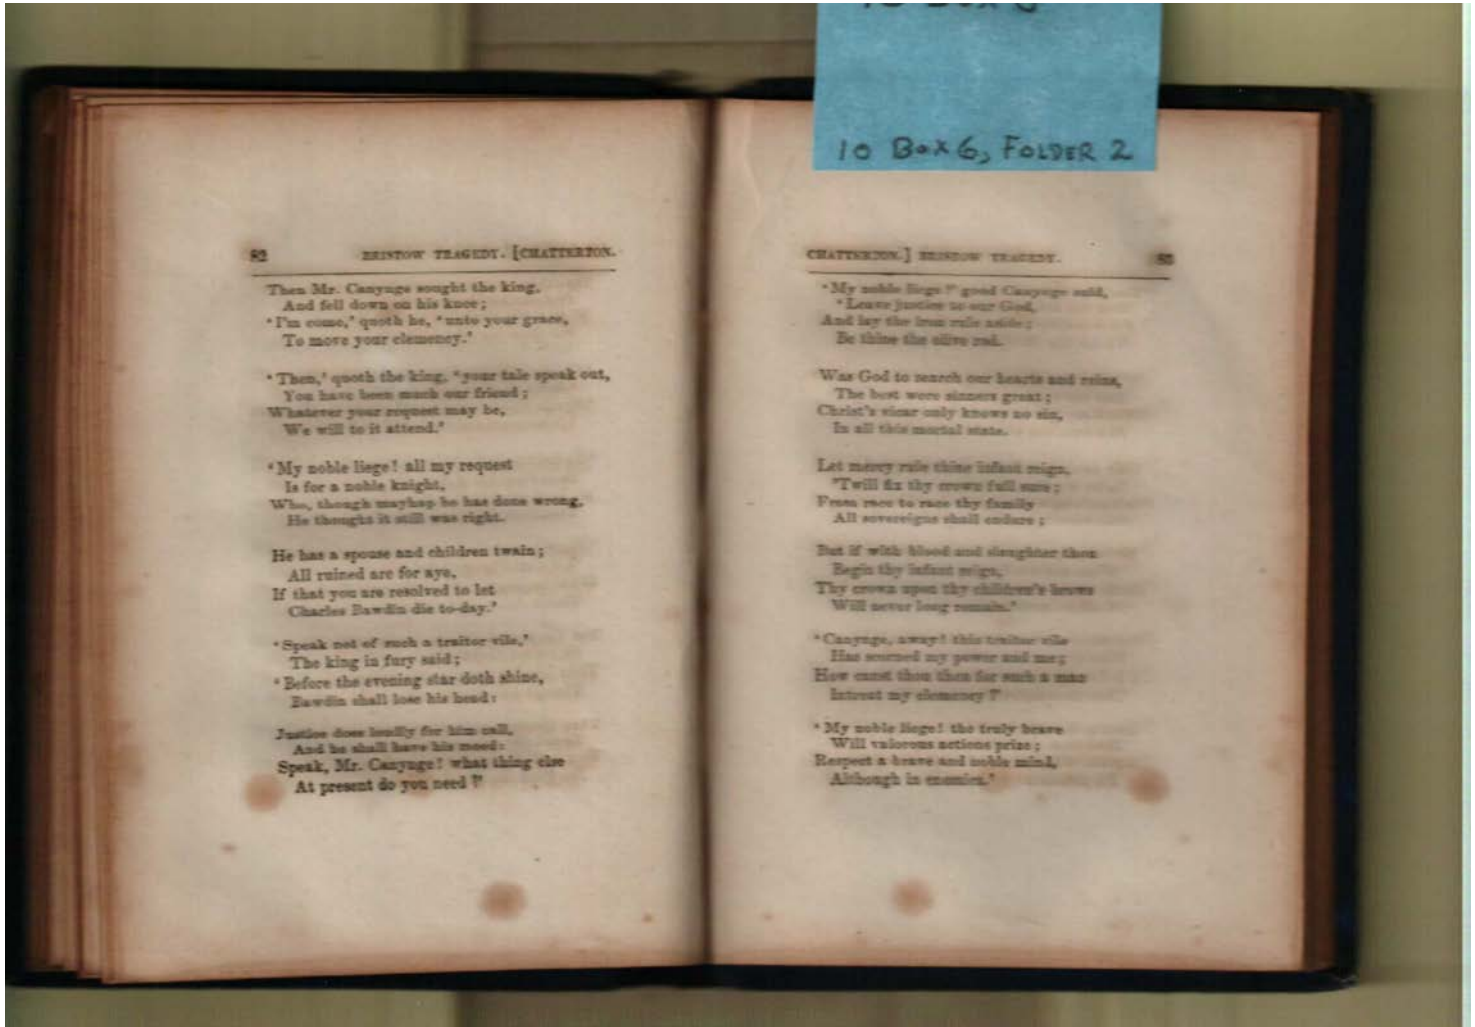 10 BOX 6, FOLDER 2
82 BRISTOW TRAGEDY. [CHATTERTON.
Then Mr. Canynge sought the king,
And fell down on his knee;
‘I'm come,’ quoth he, ‘unto your grace,
To move your clemency.’
‘Then,’ quoth the king, ‘your tale speak out,
You have been much our friend;
Whatever your request may be,
We will to it attend.’
‘My noble liege! all my request
Is for a noble knight,
Who, though mayhap he has done wrong,
He thought it still was right.
He has a spouse and children twain;
All ruined are for aye,
If that you are resolved to let
Charles Bawdin die to-day.’
‘Speak not of such a traitor vile,’
The king in fury said;
‘Before the evening star doth shine,
Bawdin shall lose his head:
Justice does loudly for him call,
And he shall have his meed:
Speak, Mr. Canynge! what thing else
At present do you need?’
CHATTERTON.] BRISTOW TRAGEDY. 83
‘My noble liege!’ good Canynge said,
‘Leave justice to our God,
And lay the iron rule aside;
Be thine the olive rod.
Was God to search our hearts and reins,
The best were sinners great;
Christ's vicar only knows no sin,
In all this mortal state.
Let mercy rule thine infant reign,
’Twill fix thy crown full sure;
From race to race thy family
All sovereigns shall endure;
But if with blood and slaughter thou
Begin thy infant reign,
Thy crown upon thy children's brows
Will never long remain.’
‘Canynge, away! this traitor vile
Has scorned my power and me;
How canst thou then for such a man
Intreat my clemency?’
‘My noble liege! the truly brave
Will valorous actions prize;
Respect a brave and noble mind,
Although in enemies.’